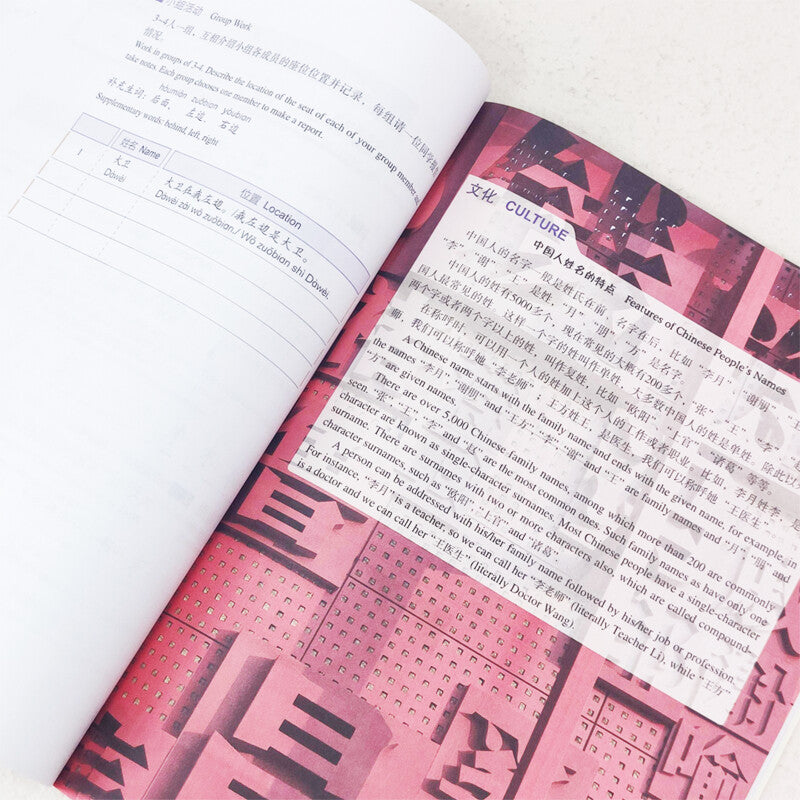 小组活动 Group Work
3-4人一组，互相介绍小组各成员的座位位置并记录，每组请一位同学报
情况。
Work in groups of 3-4. Describe the location of the seat of each of your group member and
take notes. Each group chooses one member to make a report.
hòumiàn zuǒbian yòubian
补充生词：后面， 左边， 右边
Supplementary words: behind, left, right
姓名 Name
位置 Location
1
大卫
Dàwèi
大卫在我左边。/我左边是大卫。
Dàwèi zài wǒ zuǒbian./ Wǒ zuǒbian shì Dàwèi.
文化 CULTURE
中国人姓名的特点 Features of Chinese People's Names
中国人的名字一般是姓氏在前，名字在后，比如“李月”“谢朋”“王
“李”“谢”“王”是姓，“月”“朋”“方”是名字。
中国人的姓有5000多个，现在常见的大概有200多个，“张”“王”“李”
国人最常见的姓，这样一个字的姓叫作单姓，大多数中国人的姓是单姓，除此以
两个字或者两个字以上的姓，叫作复姓，比如“欧阳”“上官”“诸葛”等等。
在称呼时，可以用一个人的姓加上这个人的工作或者职业，比如，李月姓李，是
师，我们可以称呼她“李老师”，王方姓王，是医生，我们可以称呼她“王医生”。
A Chinese name starts with the family name and ends with the given name, for example, in
the names “李月”“谢朋” and “王方”, “李”“谢” and “王” are family names and “月”“朋” and
“方” are given names.
There are over 5,000 Chinese family names, among which more than 200 are commonly
seen. “张”“王”“李” and “赵” are the most common ones. Such family names as have only one
character are known as single-character surnames. Most Chinese people have a single-character
surname. There are surnames with two or more characters also, which are called compound-
character surnames, such as “欧阳”“上官” and “诸葛”.
A person can be addressed with his/her family name followed by his/her job or profession.
For instance, “李月” is a teacher, so we can call her “李老师” (literally Teacher Li), while “王方”
is a doctor and we can call her “王医生” (literally Doctor Wang).